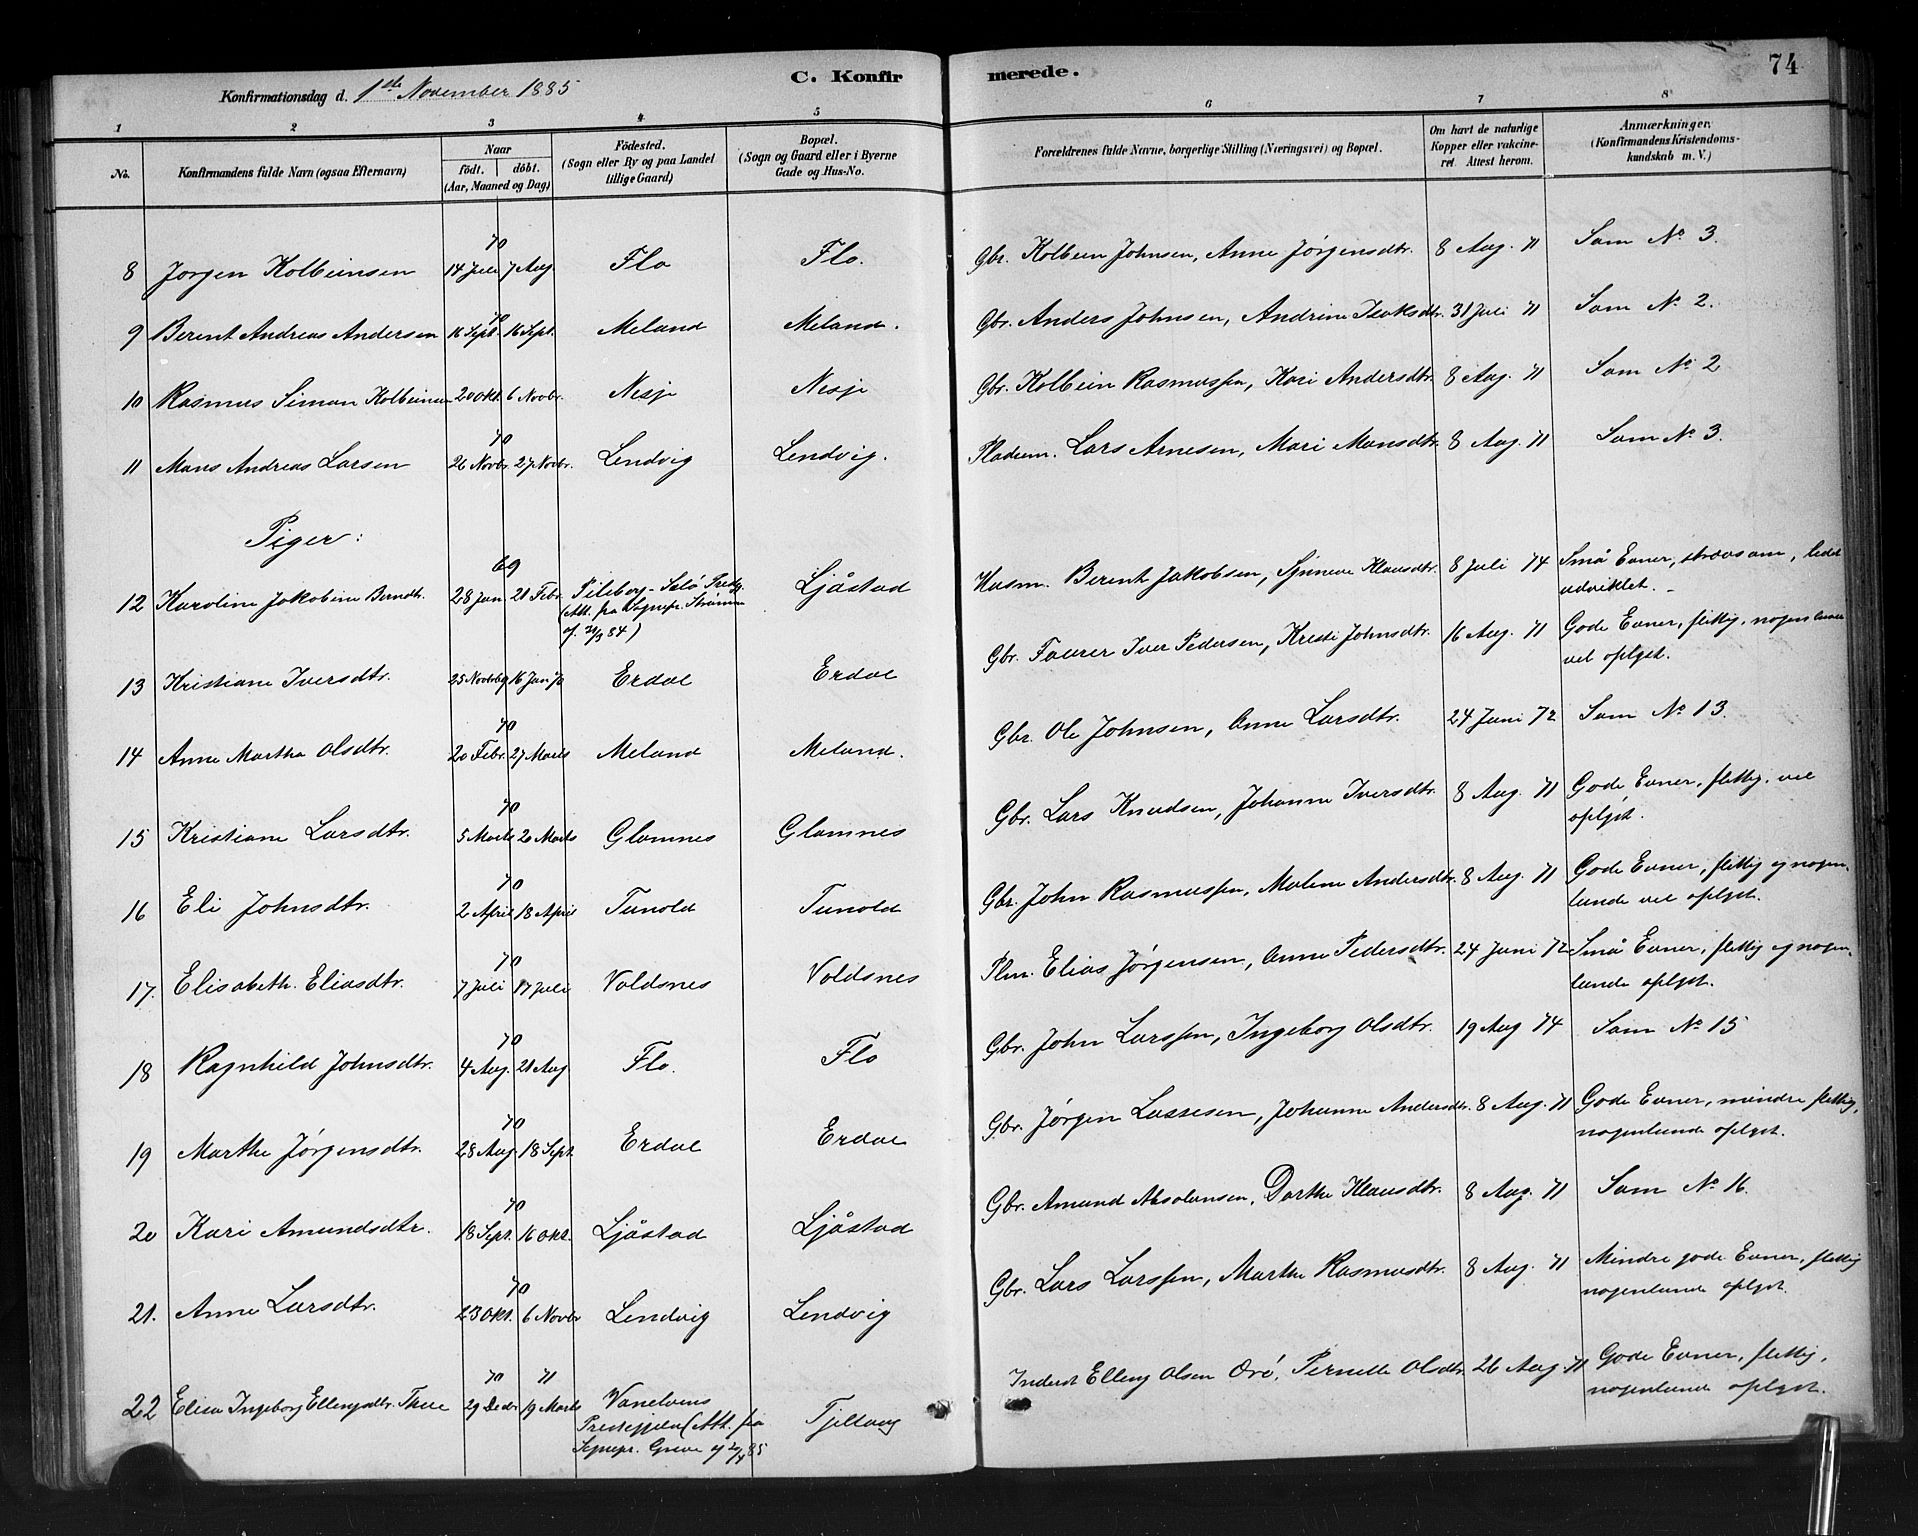 74
C. Konfirmerede.
Konfirmationsdag d. 1ste November 1885
1 2 3 4 5 6 7 8
No. | Konfirmandens fulde Navn (ogsaa Efternavn) | Naar födt. döbt. (Aar, Maaned og Dag) | Födested. (Sogn eller By og paa Landet tillige Gaard) | Bopæl. (Sogn og Gaard eller i Byerne Gade og Hus-No. | Forældrenes fulde Navne, borgerlige Stilling (Næringsvei) og Bopæl. | Om havt de naturlige Kopper eller vakcineret. Attest herom. | Anmærkninger. (Konfirmandens Kristendomskundskab m. V.)
8 | Jørgen Kolbeinsen | 70 14 Juli | 7 Aug. | Flo | Flo. | Gbr. Kolbein Johnsen, Anne Jørgensdtr. | 8 Aug. 71 | Som No 3.
9 | Berent Andreas Andersen | 70 16 Sept. | 16 Sept. | Meland | Meland. | Gbr. Anders Johnsen, Andrine Isaksdtr. | 31 Juli 71 | Som No 2.
10 | Rasmus Simon Kolbeinsen | 20 Okt. | 6 Novbr. | Nesje | Nesje | Gbr. Kolbein Rasmussen, Kari Andersdtr. | 8 Aug. 71 | Som No 2
11 | Mons Andreas Larsen | 70 26 Novbr. | 27 Novbr. | Lendvig | Lendvig. | Pladsm. Lars Arnesen, Mari Monsdtr. | 8 Aug. 71 | Som No 3.
Piger:
12 | Karoline Jakobine Berndtr. | 69 28 Jan. | 21 Febr. | (Att. fra Sognepr. | Ljåstad | Husm. Berent Jakobsen, Synneve Klausdtr. | 8 Juli 74 | Små Evner, strævsom, lidet udviklet.
13 | Kristiane Iversdtr. | 25 Novbr 69 | 16 Jan 70 | Erdal | Erdal | Gbr. Iver Pedersen, Kristi Johnsdtr. | 16 Aug. 71 | Gode Evner, flittig, nogenlunde vel oplyst.
14 | Anne Martha Olsdtr. | 70 20 Febr. | 27 Marts | Meland | Meland. | Gbr. Ole Johnsen, Anne Larsdtr. | 24 Juni 72 | Som No 13.
15 | Kristiane Larsdtr. | 70 5 Marts | 20 Marts | Glomnes | Glomnes | Gbr. Lars Knudsen, Johanne Iversdtr. | 8 Aug. 71 | Gode Evner, flittig, vel oplyst.
16 | Eli Johnsdtr. | 70 2 April | 18 April | Tunold | Tunold | Gbr. John Rasmussen, Malene Andersdtr. | 8 Aug. 71 | Gode Evner, flittig og nogenlunde vel oplyst.
17. | Elisabeth Eliasdtr. | 70 7 Juli | 17 Juli | Voldsnes | Voldsnes | Plm. Elias Jørgensen, Anne Pedersdtr. | 24 Juni 72 | Små Evner, flittig og nogenlunde oplyst.
18 | Ragnhild Johnsdtr. | 70 4 Aug. | 21 Aug | Flo. | Flo | Gbr. John Larssen, Ingeborg Olsdtr. | 19 Aug 74 | Som No 15
19 | Marthe Jørgensdtr. | 70 28 Aug. | 18 Sept. | Erdal | Erdal | Gbr. Jørgen Lassesen, Johanne Andersdtr. | 8 Aug. 71 | Gode Evner, mindre flittig, nogenlunde oplyst.
20 | Kari Amundsdtr. | 70 18 Sept. | 16 Okt. | Ljåstad | Ljåstad | Gbr. Amund Absolonsen, Dorthe Klausdtr. | 8 Aug. 71 | Som No 16.
21. | Anne Larsdtr. | 70 23 Okt. | 6 Novbr | Lendvig | Lendvig | Gbr. Lars Larssen, Marthe Rasmusdtr. | 8 Aug. 71 | Mindre gode Evner, flittig nogenlunde oplyst.
22 | Elisa Ingeborg Ellingsdtr. | 70 29 Decbr | 71 19 Marts | Vanelvens Prestegjeld (Att. fra Sognepr. Greve af 20/4 85 | Tjellaug | Inderst Elling Olsen Orö, Pernelle Olsdtr. | 26 Aug. 71 | Gode Evner, flittig, nogenlunde oplyst.